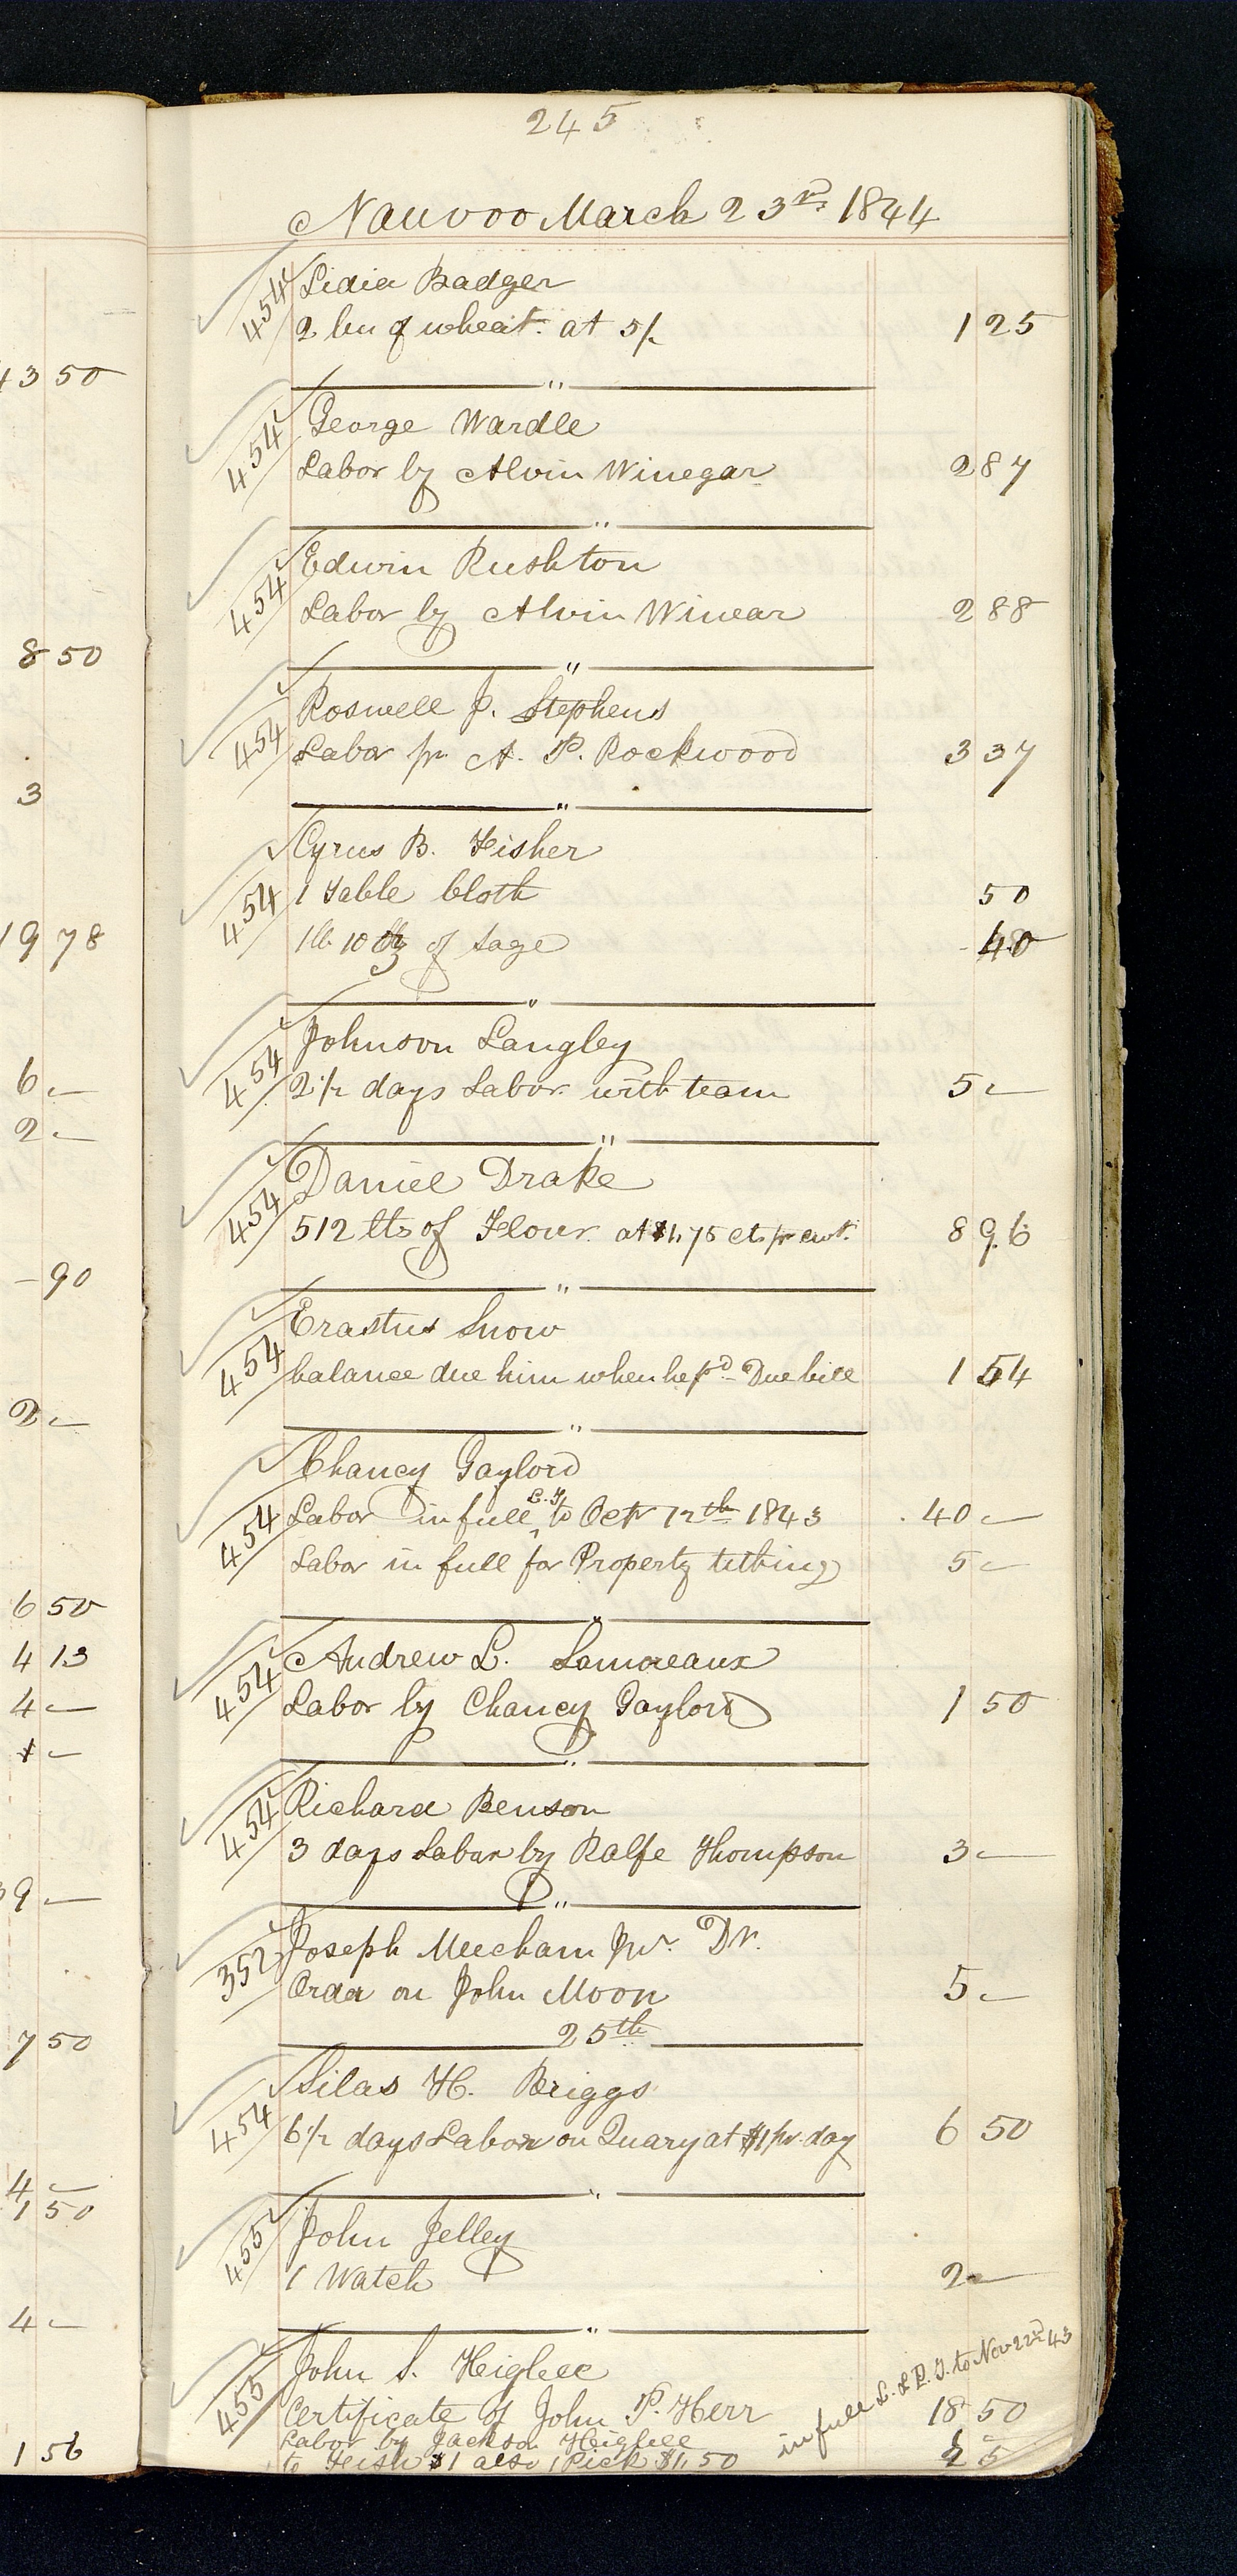 245
Nauvoo March 23rd 1844
454 Lidia Badger
2 bu of wheat at 5/- 1 25
"
454 George Wardle
Labor by Alvin Winegar 2 87
"
454 Edwin Rushton
Labor by Alvin Winear 2 88
"
454 Roswell J. Stephens
Labor pr A. P. Rockwood 3 37
"
454 Cyrus B. Fisher
1 Table Cloth 50
1 lb 10 oz of Sage 40
"
454 Johnson Langley
2 1/2 days Labor with team 5 —
"
454 Daniel Drake
512 lbs of Flour at $1,75 cts pr cwt. 8 96
"
454 Erastus Snow
balance due him when he pd Due bill 1 54
"
454 Chancy Gaylord
Labor in full L. T. to Oct 12th 1843 40 —
Labor in full for Property tithing 5 —
"
454 Andrew L. Lamoreaux
Labor by Chancy Gaylord 1 50
"
454 Richard Benson
3 days Labor by Ralfe Thompson 3 —
"
352 Joseph Meecham Jnr. Dr.
Order on John Moon 5 —
25th
454 Silas H. Briggs
6 1/2 days Labor on Quary at $1 pr day 6 50
"
455 John Jelley
1 Watch 2 —
"
455 John S. Heigbee
Certificate of John P. Herr 18 50
Labor by Jackson Heigbee
to Fish $1 also 1 Pick $1,50
in full L. & P. T. to Nov 22nd 43
43 50
8 50
3
19 78
6 —
2 —
— 90
2 —
6 50
4 13
4 —
1 —
9 —
7 50
4 —
1 50
4 —
1 56